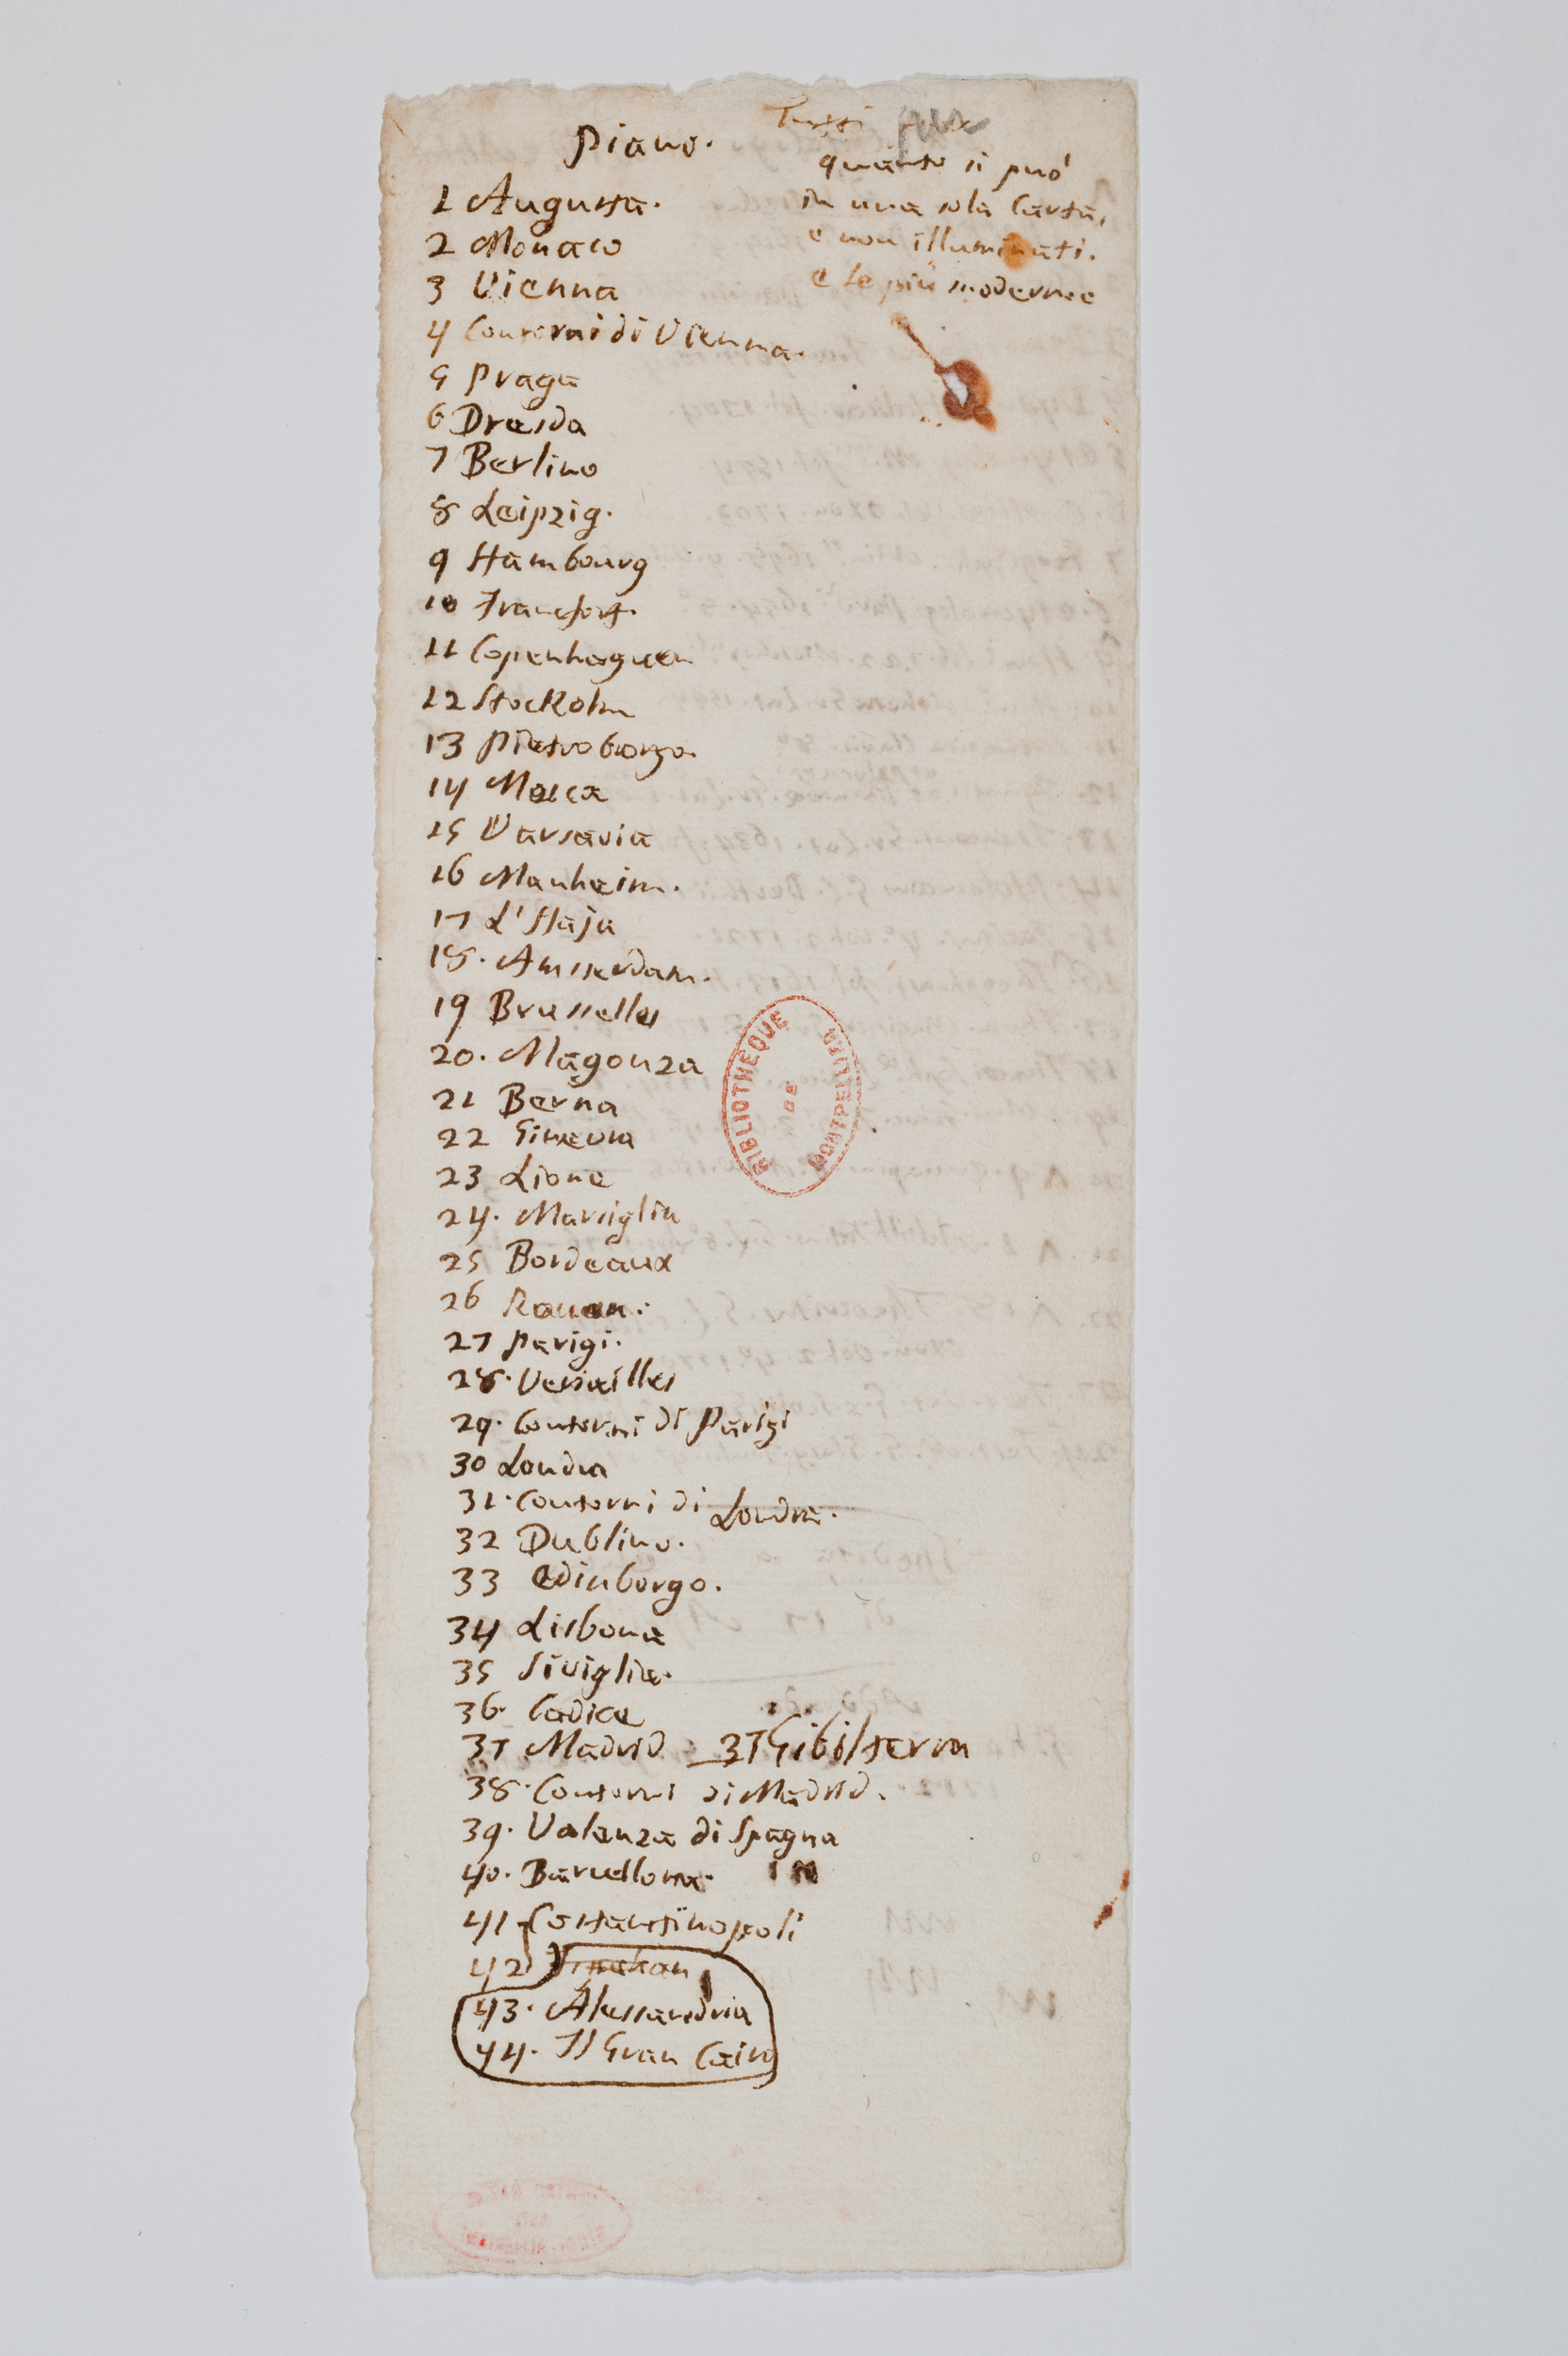 Piano.
Tutti
quanto si può
in una sola Carta,
e non illuminati.
e le più moderne
1 Augusta.
2 Monaco
3 Vienna
4 Contorni di Vienna.
5 Praga
6 Dresda
7 Berlino
8 Leipzig.
9 Hambourg
10 Francfort.
11 Copenhaguen
12 Stockolm
13 Pietroborgo.
14 Mosca
15 Varsavia
16 Manheim.
17 L'Haja
18. Amsterdam.
19 Brusselles
20. Magonza
21 Berna
22 Ginevra
23 Lione
24. Marsiglia
25 Bordeaux
26 Rouen.
27 Parigi.
28. Versailles
29. Contorni di Parigi
30 Londra
31. Contorni di Londra.
32 Dublino.
33 Edinborgo.
34 Lisbona
35 Siviglia.
36. Cadice
37 Madrid 37 Gibilterra
38. Contorni di Madrid.
39. Valenza di Spagna
40. Barcellona.
41 Costantinopoli
42
43. Alessandria
44. Il Gran Cairo
BIBLIOTHÈQUE DE MONTPELLIER